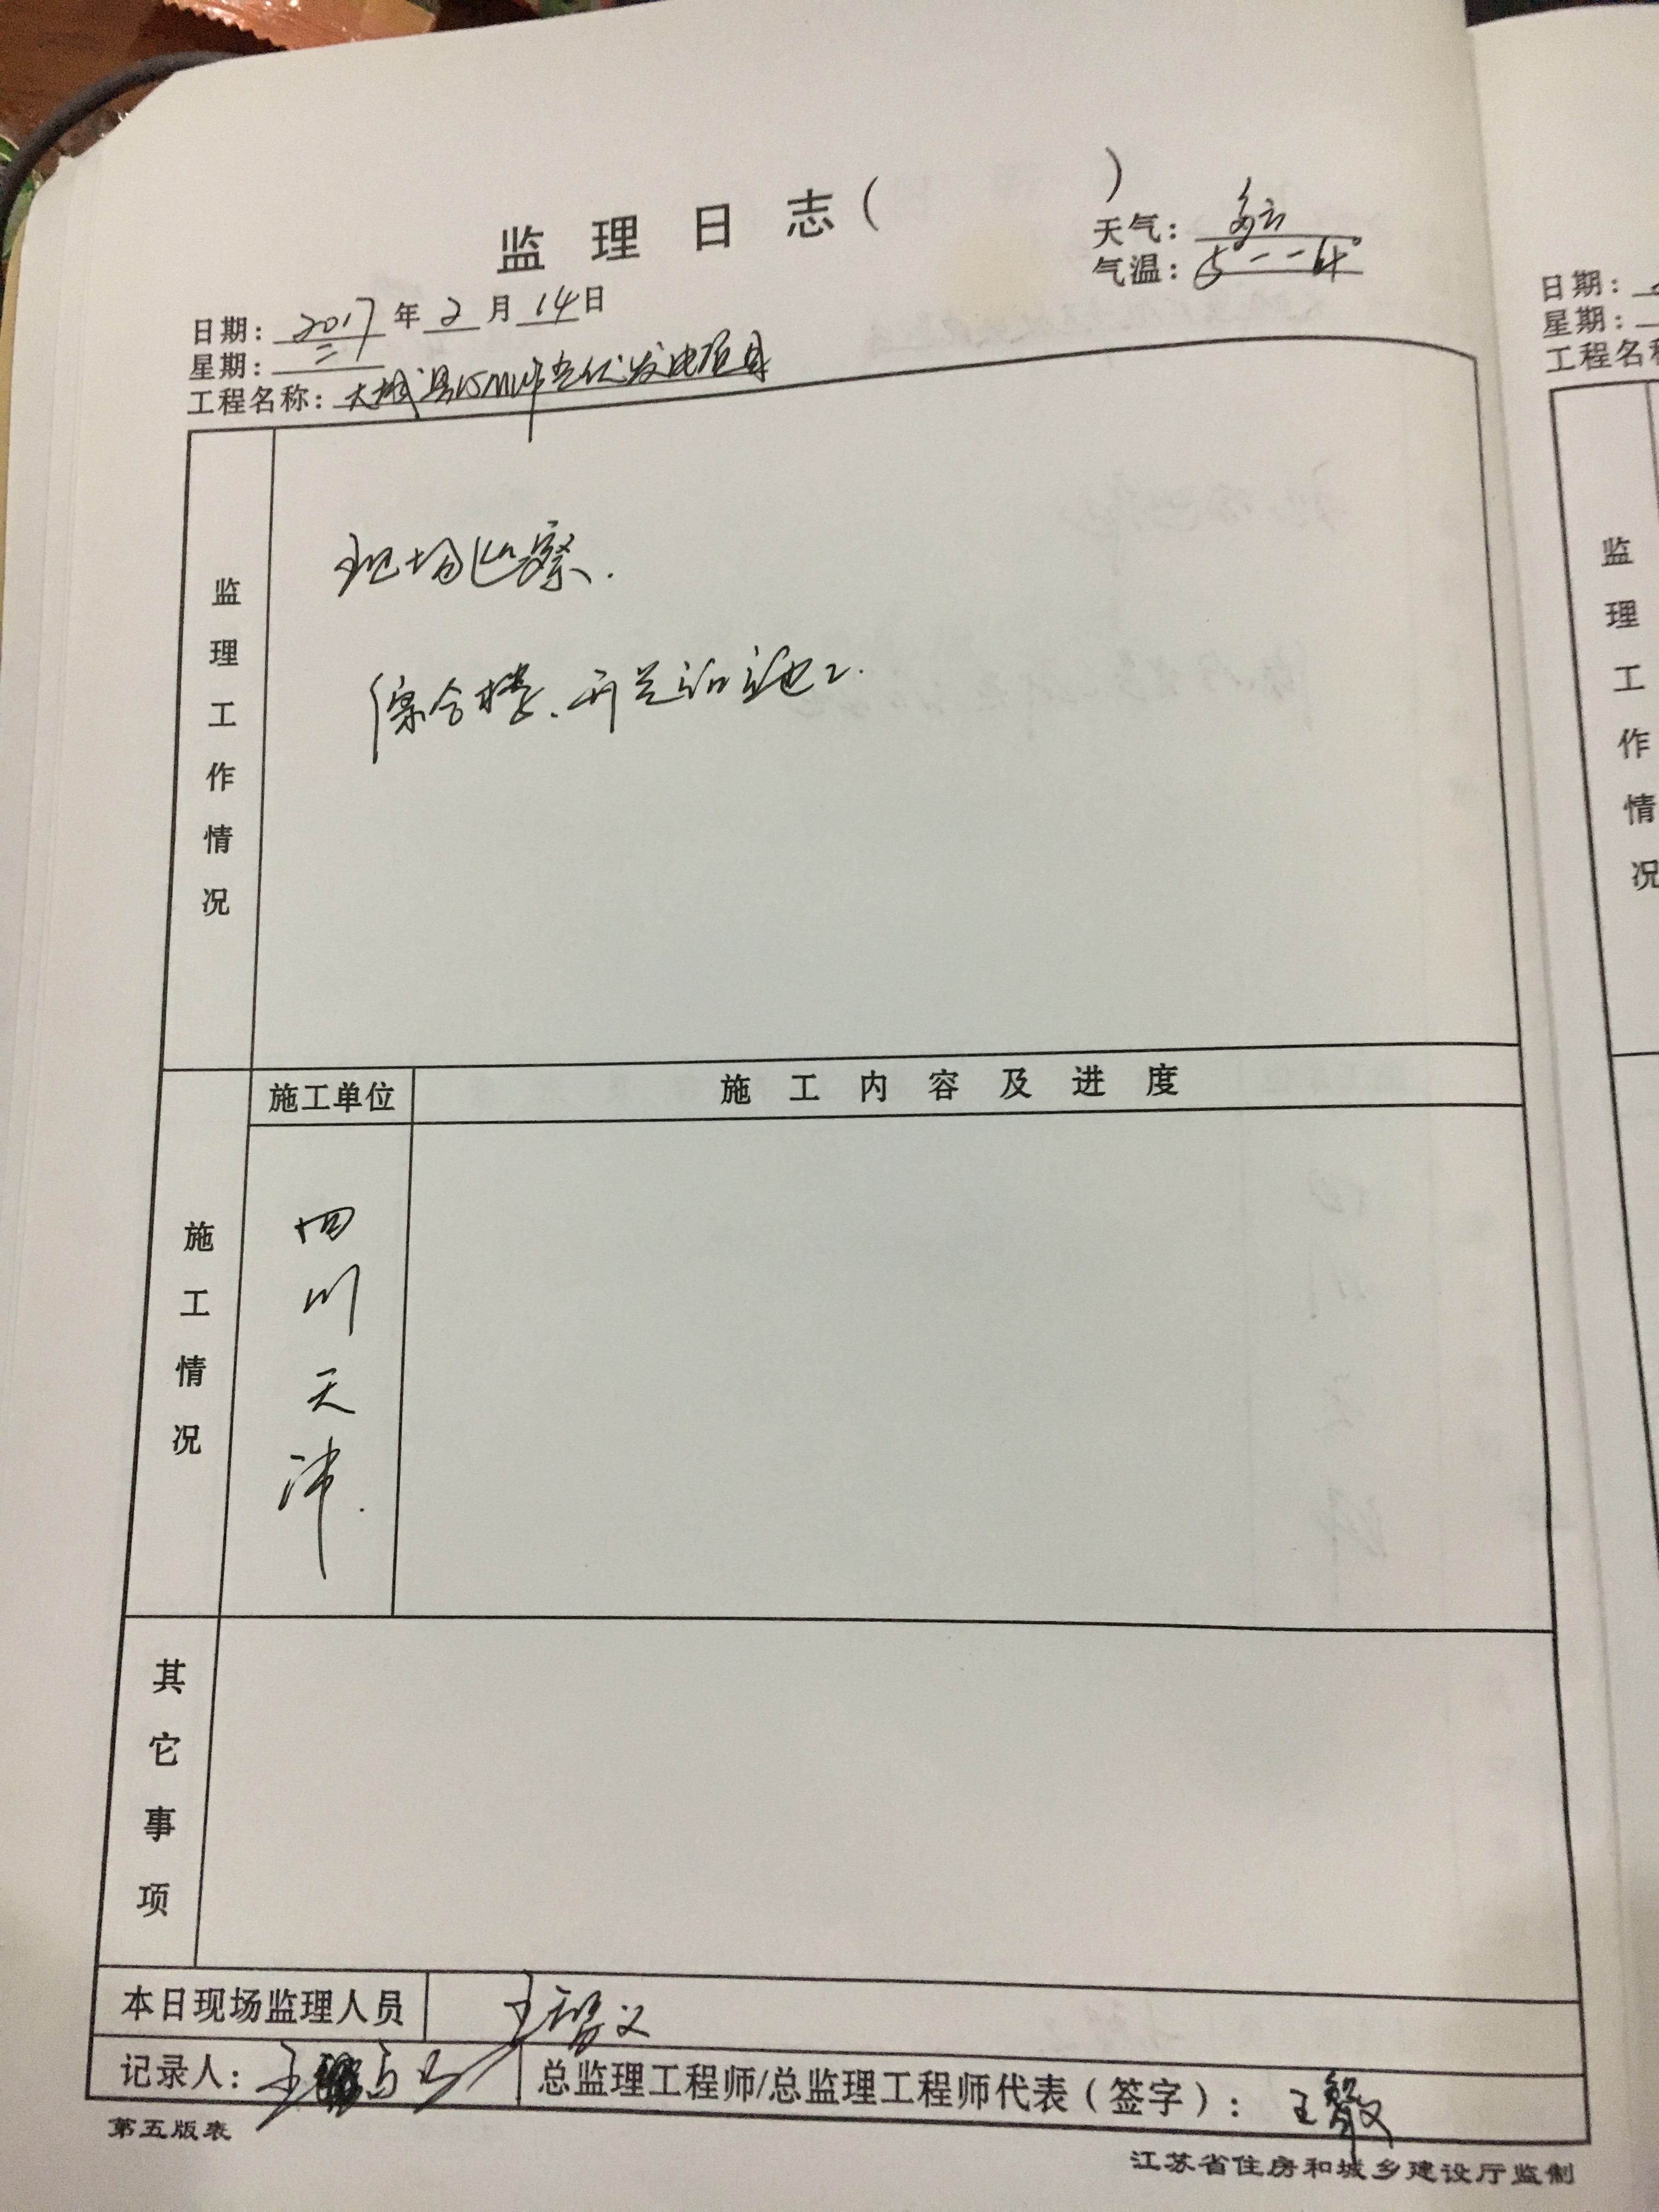 监理日志（ ）
天气：多云
气温：5°--4°
日期：2017年2月14日
星期：二
工程名称：大城县15MW光伏发电项目
监理工作情况
现场巡察.
综合楼.开关站施工.
施工单位
施工内容及进度
施工情况
四川天沛.
其它事项
本日现场监理人员
记录人：
总监理工程师/总监理工程师代表（签字）：
第五版表
江苏省住房和城乡建设厅监制
日期：
星期：
工程名称
监理工作情况